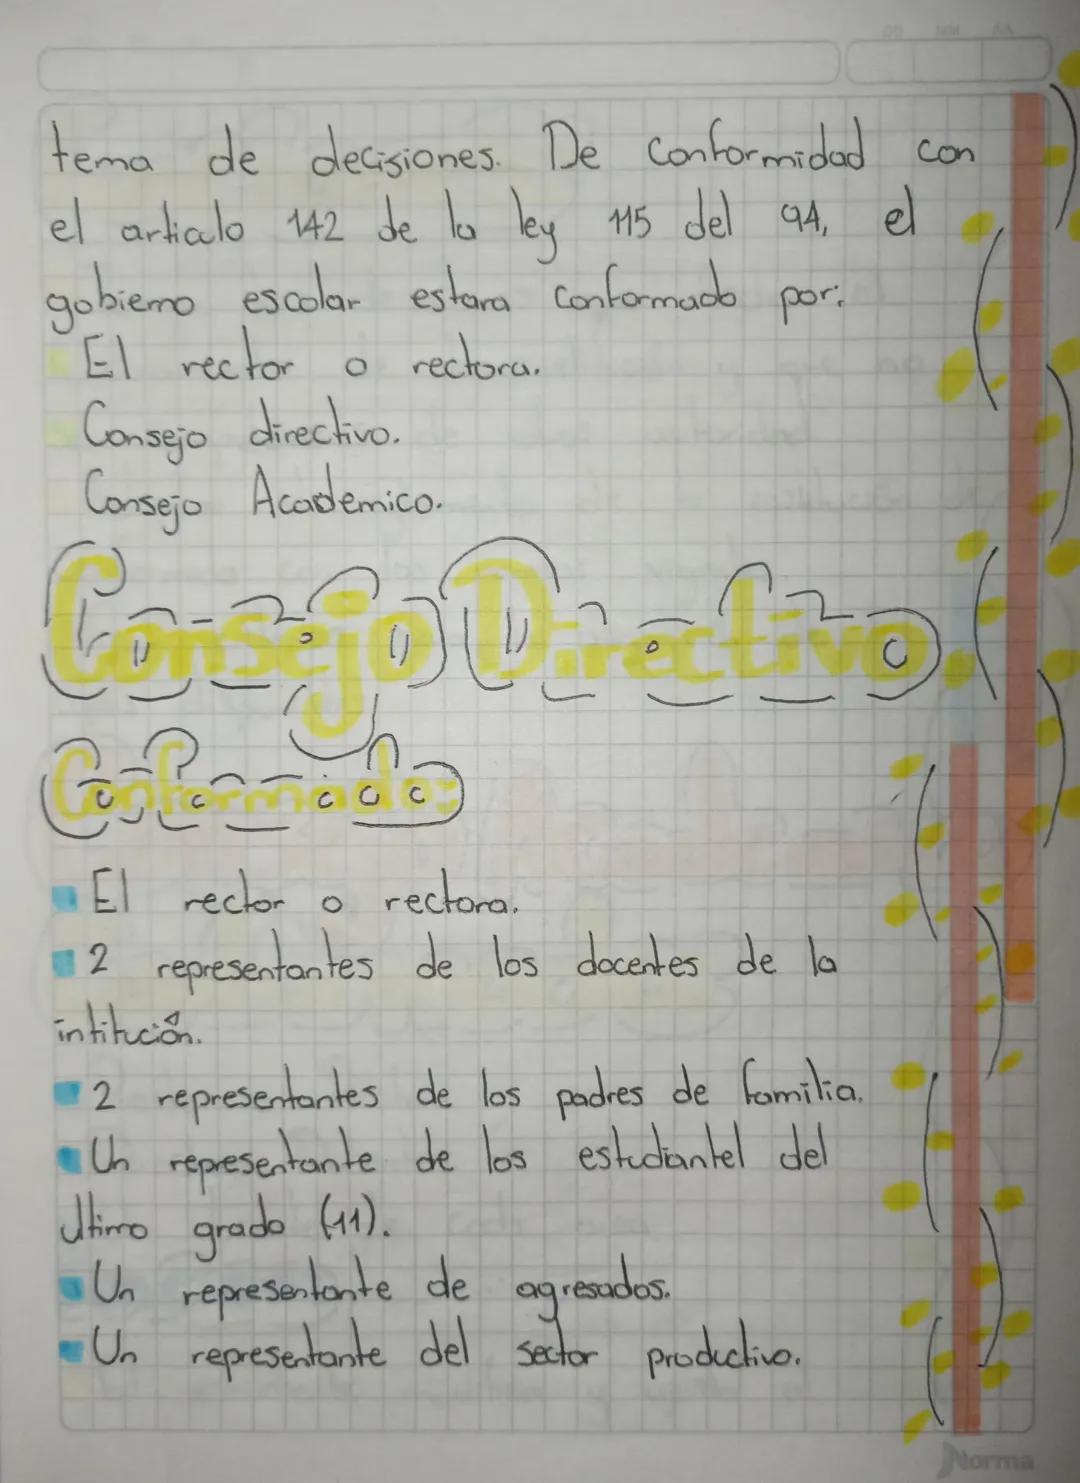 tema de decisiones. De conformidad con
el articulo 142 de la ley 115 del 94, el
gobierno escolar estara conformado por:
El rector o rectora.
Consejo directivo.
Consejo Academico.
Consejo Directivo.
Conformado:
El rector o rectora.
2 representantes de los docentes de la
intitución.
2 representantes de los padres de familia.
Un representante de los estudiantel del
ultimo grado (11).
Un representante de agresados.
Un representante del sector productivo.
Norma